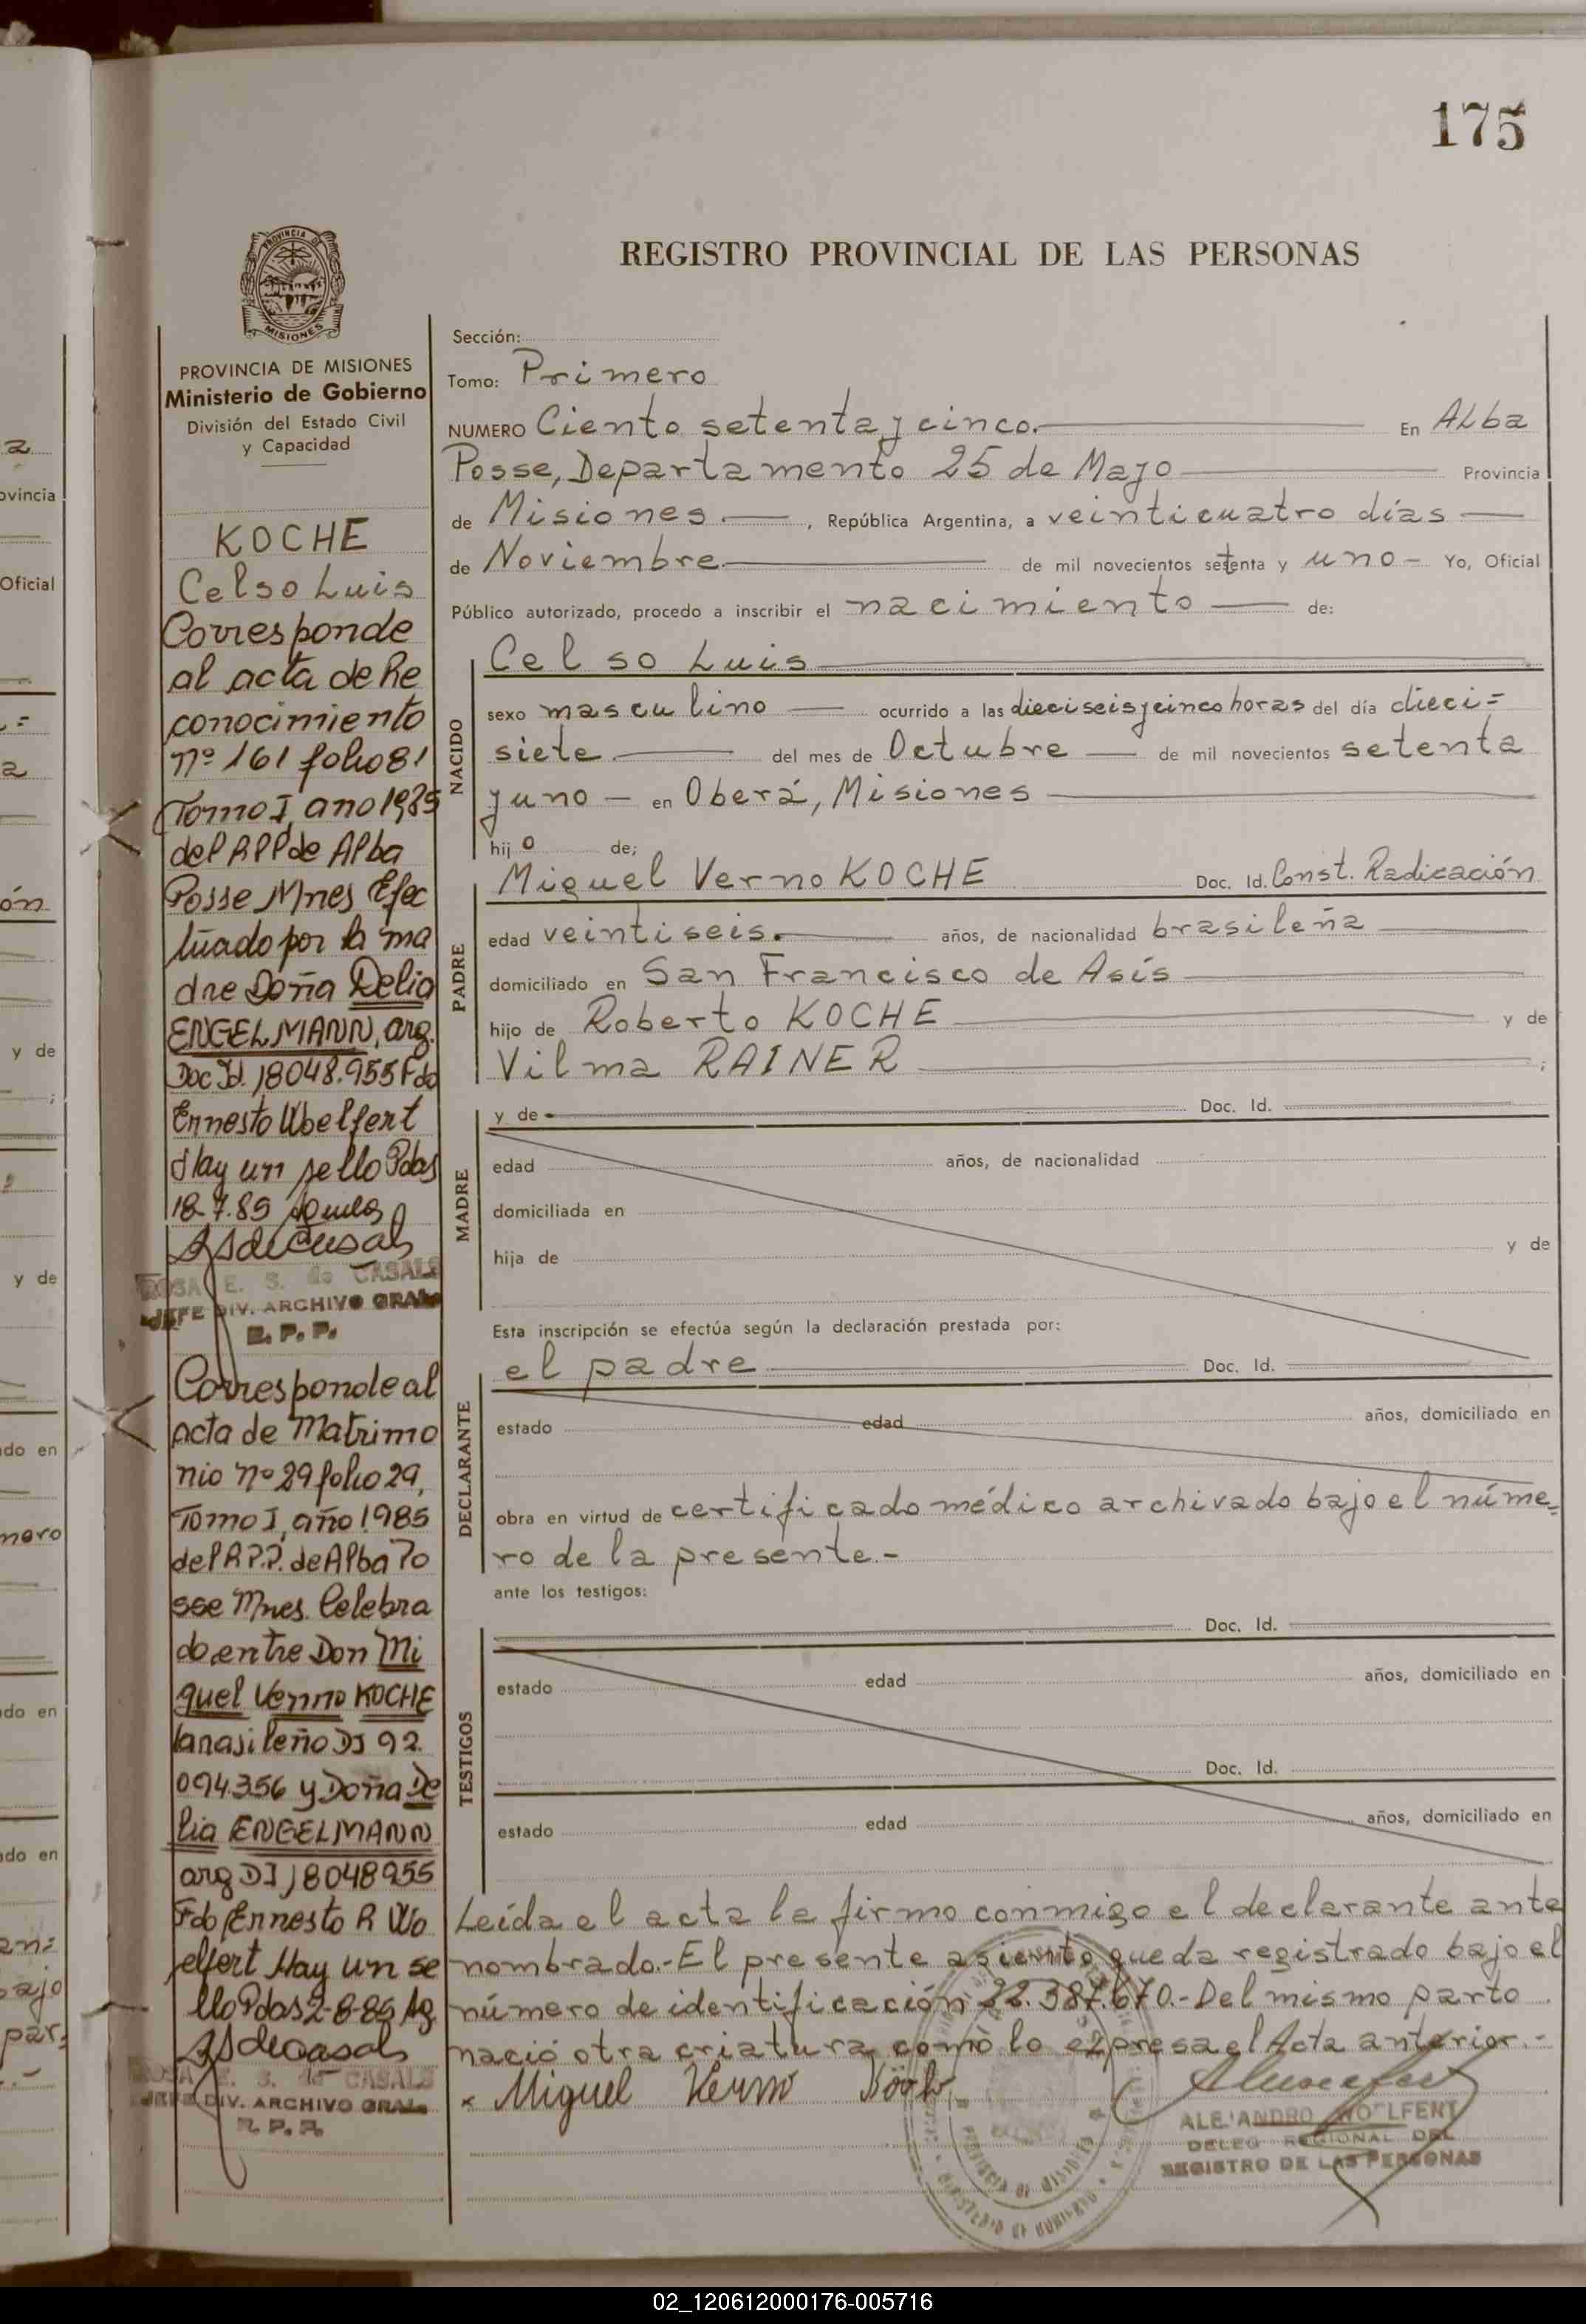 175
REGISTRO PROVINCIAL DE LAS PERSONAS
PROVINCIA DE
MISIONES
PROVINCIA DE MISIONES
Ministerio de Gobierno
División del Estado Civil
y Capacidad
KOCHE
Celso Luis
Corresponde
al acta de Re
conocimiento
nº 161 folio 81
Tomo I, año 1985
del RPP de Alba
Posse Mnes Efec
tuado por la ma
dre Doña Delia
ENGELMANN, arg.
Doc Id. 18048.955 Fdo
Ernesto Woelfert
Hay un sello Pdas
18-7-85
ROSA E. S. de CASALS
JEFE DIV. ARCHIVO GRAL.
R. P. P.
Corresponde al
acta de Matrimo
nio nº 29 folio 29,
Tomo I, año 1985
del R.P.P. de Alba Po
sse Mnes. Celebra
do entre Don Mi
guel Verno KOCHE
brasileño DI 92.
094.356 y Doña De
lia ENGELMANN
arg DI 18048955
Fdo Ernesto R Wo
elfert Hay un se
llo Pdas 2-8-85 Ag
ROSA E. S. de CASALS
JEFE DIV. ARCHIVO GRAL.
R. P. P.
Sección:
Tomo: Primero
NUMERO Ciento setenta y cinco. En Alba
Posse, Departamento 25 de Mayo Provincia
de Misiones , República Argentina, a veinticuatro días
de Noviembre de mil novecientos setenta y uno - Yo, Oficial
Público autorizado, procedo a inscribir el nacimiento de:
NACIDO
Celso Luis
sexo masculino ocurrido a las dieciseis y cinco horas del día dieci=
siete del mes de Octubre de mil novecientos setenta
y uno - en Oberá, Misiones
hijo de;
PADRE
Miguel Verno KOCHE Doc. Id. Const. Radicación
edad veintiseis. años, de nacionalidad brasileña
domiciliado en San Francisco de Asís
hijo de Roberto KOCHE y de
Vilma RAINER ;
MADRE
y de Doc. Id.
edad años, de nacionalidad
domiciliada en
hija de y de
Esta inscripción se efectúa según la declaración prestada por:
DECLARANTE
el padre Doc. Id.
estado edad años, domiciliado en
obra en virtud de certificado médico archivado bajo el núme=
ro de la presente.-
ante los testigos:
TESTIGOS
Doc. Id.
estado edad años, domiciliado en
Doc. Id.
estado edad años, domiciliado en
Leída el acta la firmo conmigo el declarante ante
nombrado.- El presente asiento queda registrado bajo el
número de identificación 22.387.670.- Del mismo parto
nació otra criatura como lo expresa el Acta anterior.-
x Miguel Verno
ALEJANDRO WOELFERT
DELEG REGIONAL DEL
REGISTRO DE LAS PERSONAS
PROVINCIA DE MISIONES
MINISTERIO DE GOBIERNO
a
ovincia
Oficial
ón
y de
y de
do en
mero
do en
do en
bajo
par=
02_120612000176-005716